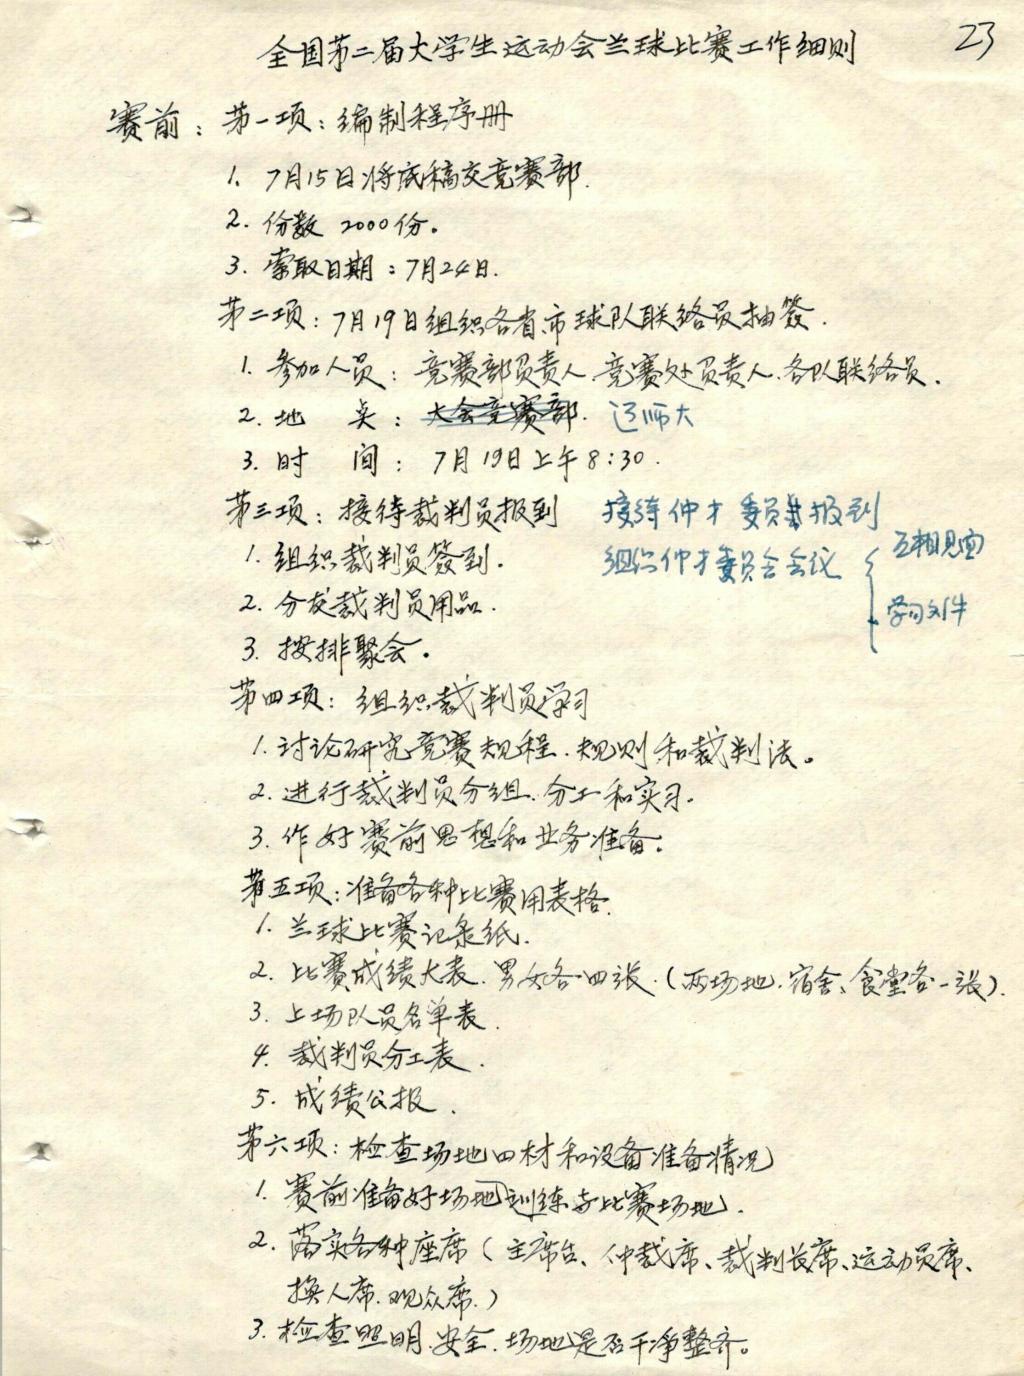 23
全国第二届大学生运动会兰球比赛工作细则
赛前：第一项：编制程序册
1. 7月15日将底稿交竞赛部.
2. 份数 2000份。
3. 索取日期：7月24日.
第二项：7月19日组织各省、市球队联络员抽签.
1. 参加人员：竞赛部负责人、竞赛处负责人、各队联络员.
2. 地 点：大会竞赛部. 辽师大
3. 时 间：7月19日上午8:30.
第三项：接待裁判员报到 接待仲才委员报到
1. 组织裁判员签到. 组织仲才委员会会议 互相见面
2. 分发裁判员用品. 学习文件
3. 按排聚会。
第四项：组织裁判员学习
1. 讨论研究竞赛规程、规则和裁判法。
2. 进行裁判员分组、分工和实习.
3. 作好赛前思想和业务准备.
第五项：准备各种比赛用表格.
1. 兰球比赛记录纸.
2. 比赛成绩大表. 男女各四张.(两场地、宿舍、食堂各一张).
3. 上场队员名单表.
4. 裁判员分工表.
5. 成绩公报.
第六项：检查场地口材和设备准备情况
1. 赛前准备好场地(训练与比赛场地).
2. 落实各种座席(主席台、仲裁席、裁判长席、运动员席、
换人席、观众席.)
3. 检查照明、安全、场地是否干净整齐。